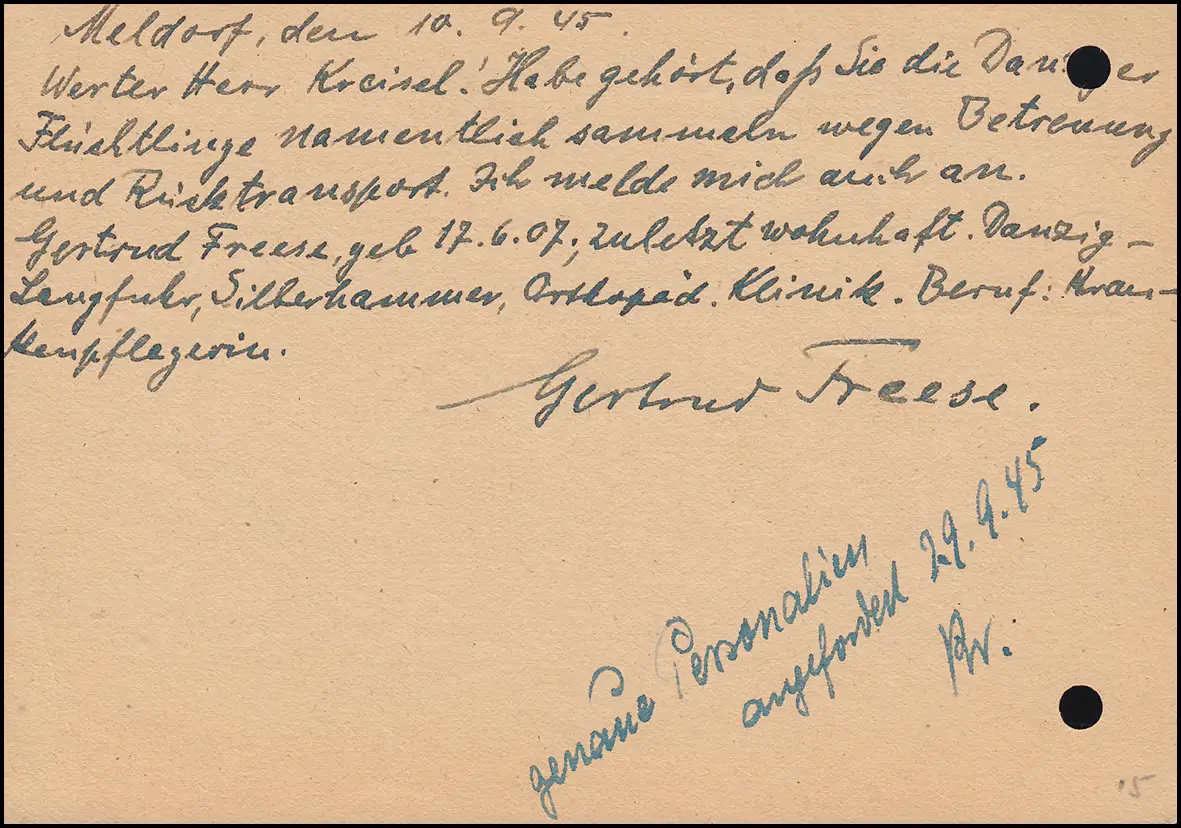 Meldorf, den 10. 9. 45.
Werter Herr Kreisel! Habe gehört, daß Sie die Danziger
Flüchtlinge namentlich sammeln wegen Betreuung
und Rücktransport. Ich melde mich auch an.
Gertrud Freese, geb 17.6.07, zuletzt wohnhaft. Danzig-
Langfuhr, Silberhammer, Orthopäd. Klinik. Beruf: Kran-
kenpflegerin.
Gertrud Freese.
genaue Personalien
angefordert 29.9.45
Kr.
15